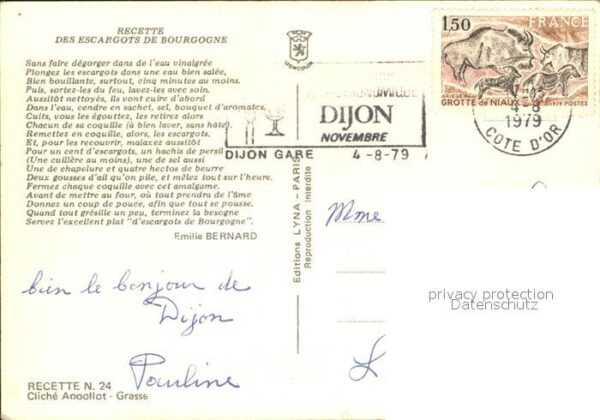 RECETTE
DES ESCARGOTS DE BOURGOGNE
Sans faire dégorger dans de l'eau vinaigrée
Plongez les escargots dans une eau bien salée,
Bien bouillante, surtout, cinq minutes au moins.
Puis, sortez-les du feu, lavez-les avec soin,
Aussitôt nettoyés, ils vont cuire d'abord
Dans l'eau, cendre en sachet, sel, bouquet d'aromates.
Cuits, vous les égouttez, les retirez alors
Chacun de sa coquille (à bien laver, sans hâte)
Remettez en coquille, alors, les escargots.
Et, pour les recouvrir, malaxez aussitôt
Pour un cent d'escargots, un hachis de persil
(Une cuillère au moins), une de sel aussi
Une de chapelure et quatre hectos de beurre
Deux gousses d'ail qu'on pile, et mêlez tout sur l'heure.
Fermez chaque coquille avec cet amalgame.
Avant de mettre au four, où tout prendra de l'âme
Donnez un coup de pouce, afin que tout se pose.
Quand tout grésille un peu, terminez la besogne
Servez l'excellent plat "d'escargots de Bourgogne".
Emilie BERNARD
bien le bonjour de
Dijon
Pauline
RECETTE N. 24
Cliché Apollot - Grasse
LYONCOLOR
Editions LYNA - PARIS
Reproduction interdite
DIJON
NOVEMBRE
DIJON GARE 4-8-79
1,50 FRANCE
ARIEGE
GROTTE DE NIAUX 1979 POSTES
4-8
1979
COTE D'OR
Mme
privacy protection
Datenschutz